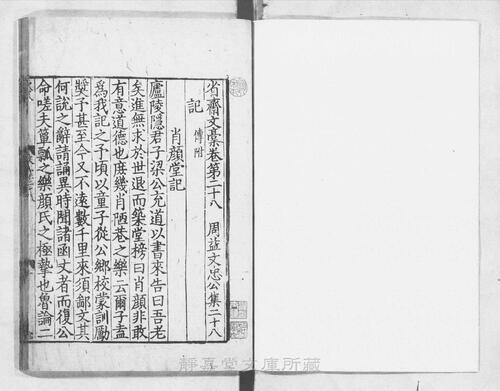 省齋文稾卷第二十八　周益文忠公集二十八
記　傳附
肖顔堂記
廬陵隱君子梁公充道以書來告曰吾老
矣進無求於世退而築堂榜曰肖顔非敢
有意道德也庶幾肖陋巷之樂云爾子盍
爲我記之予頃以童子從公鄉校蒙訓勵
奬予甚至今又不遠數千里來須鄙文其
何說之辭請誦異時聞諸函丈者而復公
命嗟夫簞瓢之樂顔氏之極摯也魯論二
静嘉堂文庫所蔵